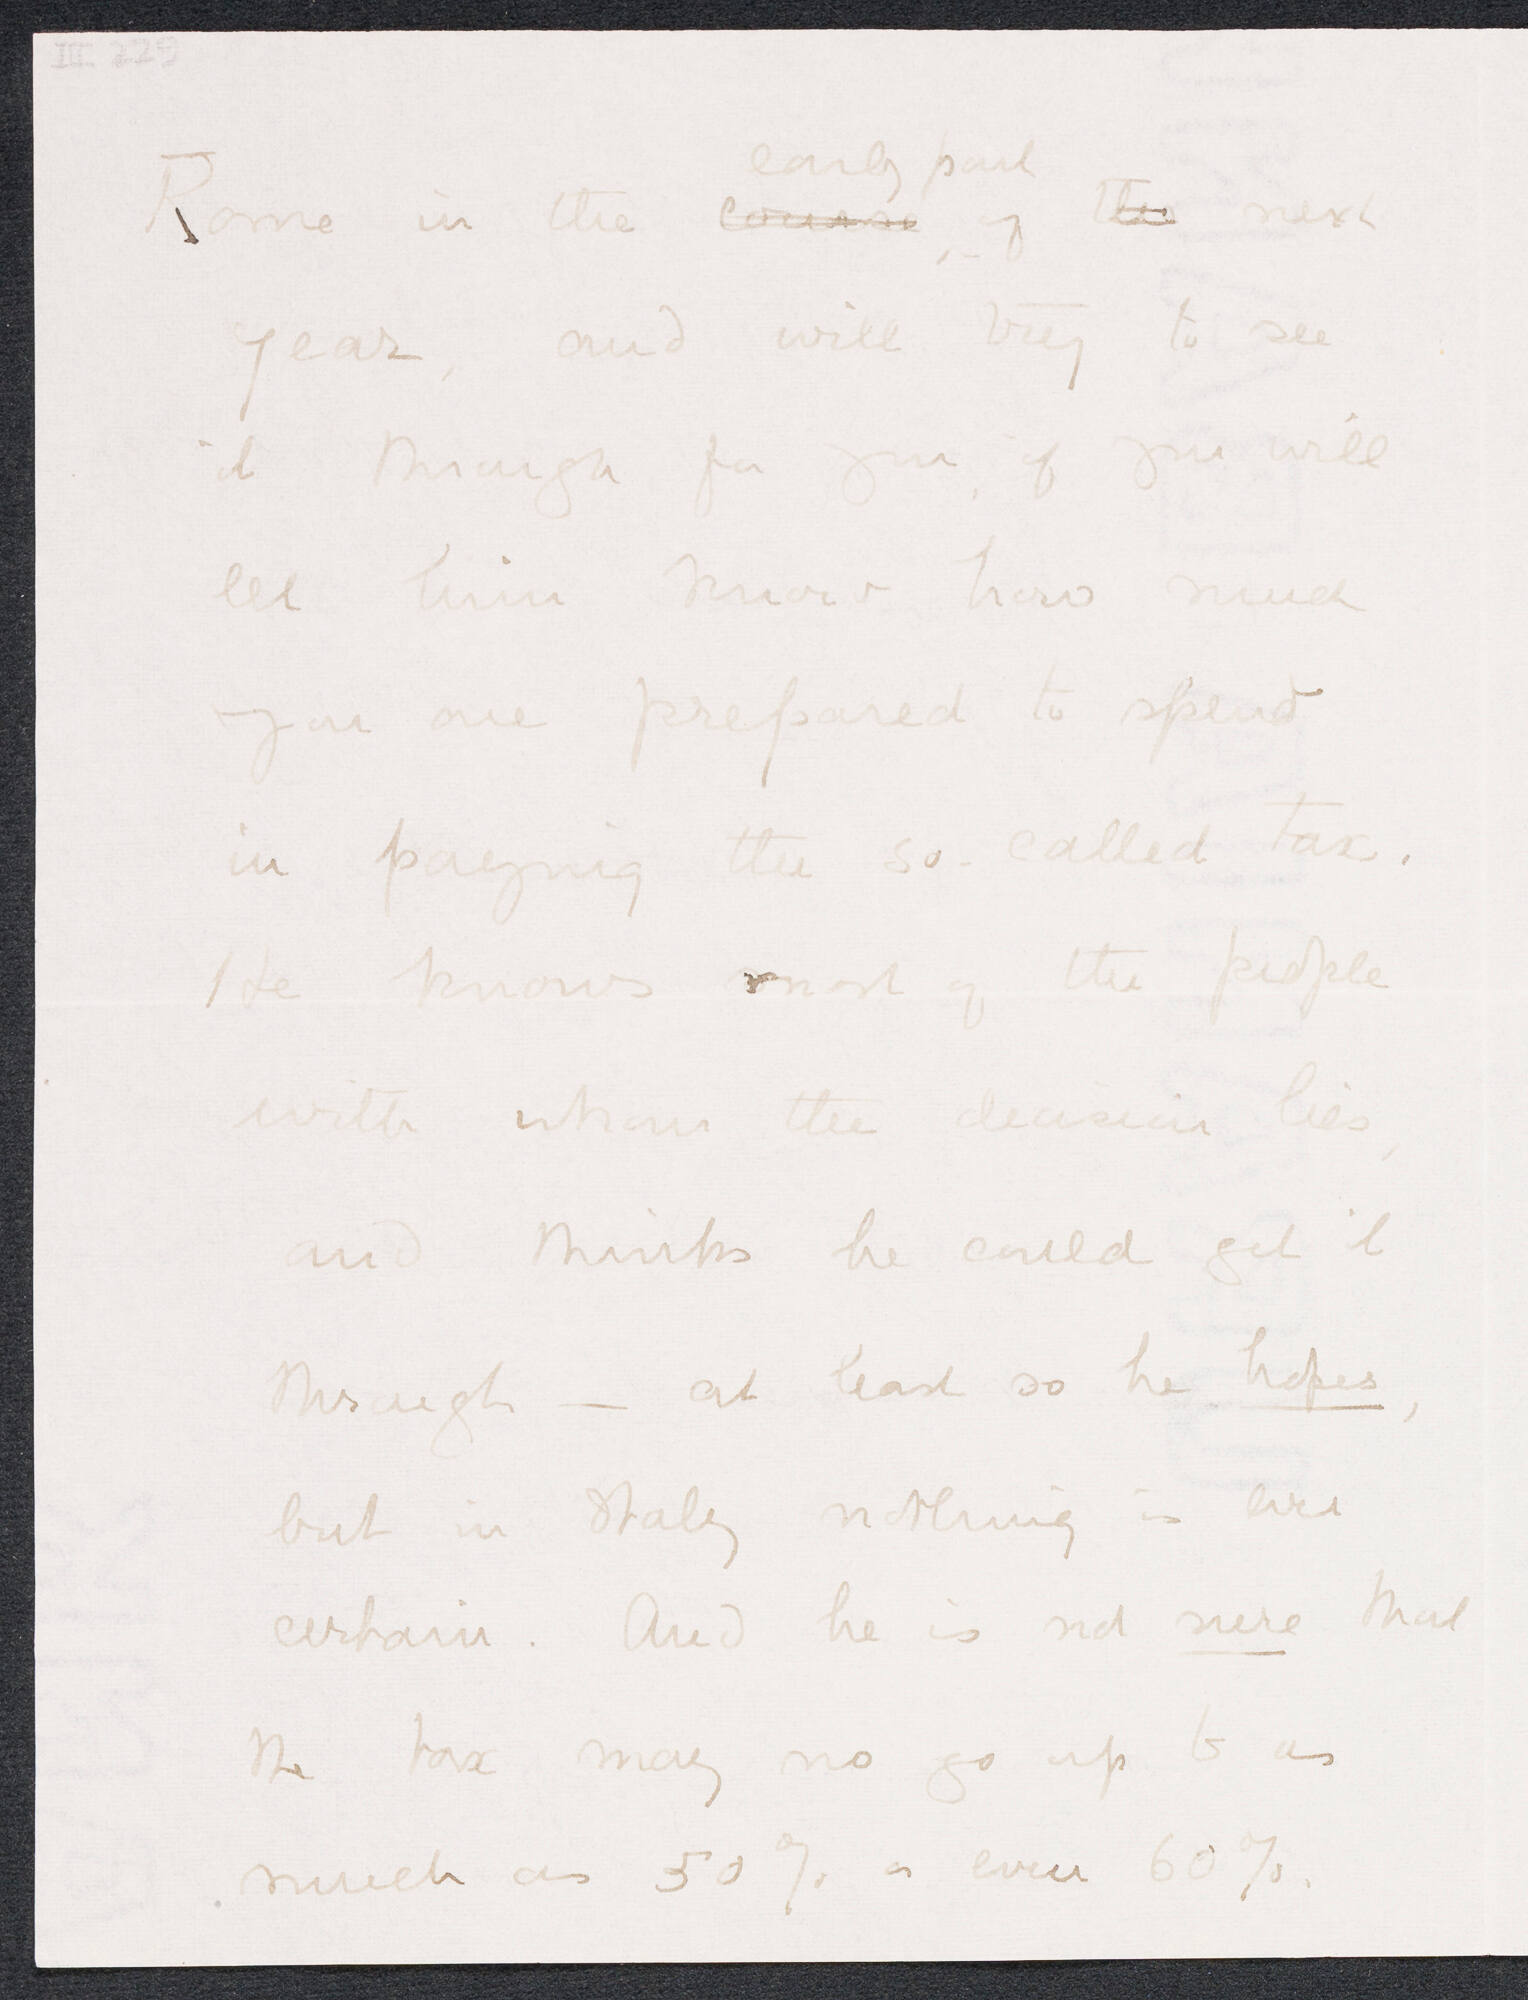 III. 229
early part
Rome in the course, of the next
year, and will try to see
it through for you, if you will
let him know how much
you are prepared to spend
in paying the so-called tax.
He knows most of the people
with whom the decision lies,
and thinks he could get it
through — at least so he hopes,
but in Italy nothing is ever
certain. And he is not sure that
the tax may no go up to as
much as 50% or even 60%.